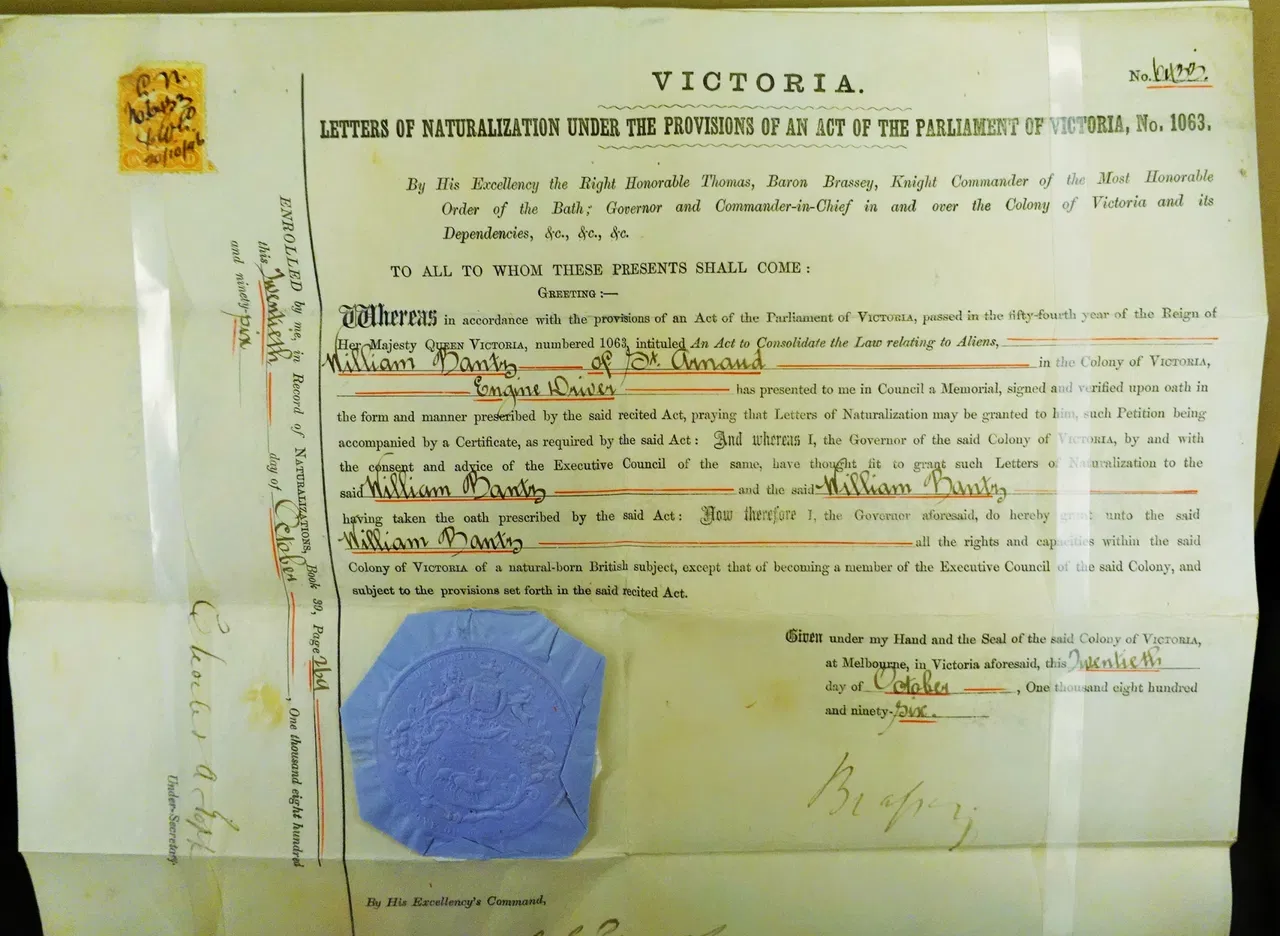 VICTORIA.
No. 6433.
LETTERS OF NATURALIZATION UNDER THE PROVISIONS OF AN ACT OF THE PARLIAMENT OF VICTORIA, No. 1063.
By His Excellency the Right Honorable Thomas, Baron Brassey, Knight Commander of the Most Honorable
Order of the Bath; Governor and Commander-in-Chief in and over the Colony of Victoria and its
Dependencies, &c., &c., &c.
TO ALL TO WHOM THESE PRESENTS SHALL COME:
GREETING:—
Whereas in accordance with the provisions of an Act of the Parliament of VICTORIA, passed in the fifty-fourth year of the Reign of
Her Majesty QUEEN VICTORIA, numbered 1063, intituled An Act to Consolidate the Law relating to Aliens,
William Bantz of St. Arnaud in the Colony of VICTORIA,
Engine Driver has presented to me in Council a Memorial, signed and verified upon oath in
the form and manner prescribed by the said recited Act, praying that Letters of Naturalization may be granted to him, such Petition being
accompanied by a Certificate, as required by the said Act: And whereas I, the Governor of the said Colony of VICTORIA, by and with
the consent and advice of the Executive Council of the same, have thought fit to grant such Letters of Naturalization to the
said William Bantz and the said William Bantz
having taken the oath prescribed by the said Act: Now therefore I, the Governor aforesaid, do hereby grant unto the said
William Bantz all the rights and capacities within the said
Colony of VICTORIA of a natural-born British subject, except that of becoming a member of the Executive Council of the said Colony, and
subject to the provisions set forth in the said recited Act.
Given under my Hand and the Seal of the said Colony of VICTORIA,
at Melbourne, in Victoria aforesaid, this Twentieth
day of October, One thousand eight hundred
and ninety-six.
Brassey
By His Excellency's Command,
ENROLLED by me, in Record of NATURALIZATIONS, Book 39, Page 264
this Twentieth day of October, One thousand eight hundred
and ninety-six
Under-Secretary
No 6433
20/10/96